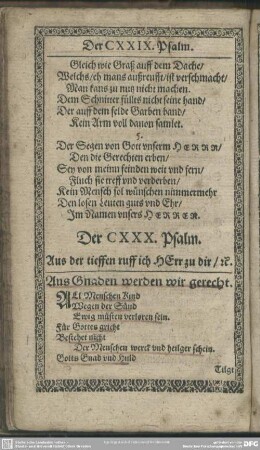 Der CXXIX. Psalm.
Gleich wie Graß auff dem Dache/
Welchs/eh mans außreufft/ist verschmacht/
Man kans zu nutz nicht machen.
Dem Schnitter füllts nicht seine hand/
Der auff dem felde Garben band/
Kein Arm voll davon samlet.
5.
Der Segen von Gott vnserm HERRN/
Den die Gerechten erben/
Sey von meinn feinden weit vnd fern/
Fluch sie treff vnd verderben/
Kein Mensch sol wünschen nimmermehr
Den losen Leuten guts vnd Ehr/
Im Namen vnsers HERREN.
Der CXXX. Psalm.
Aus der tieffen ruff ich HErr zu dir/ ꝛc.
Aus Gnaden werden wir gerecht.
All Menschen Kind
Wegen der Sünd
Ewig müsten verloren sein.
Für Gottes gricht
Bestehet nicht
Der Menschen werck vnd heilger schein.
Gotts Gnad vnd Huld
Tilgt
DFG